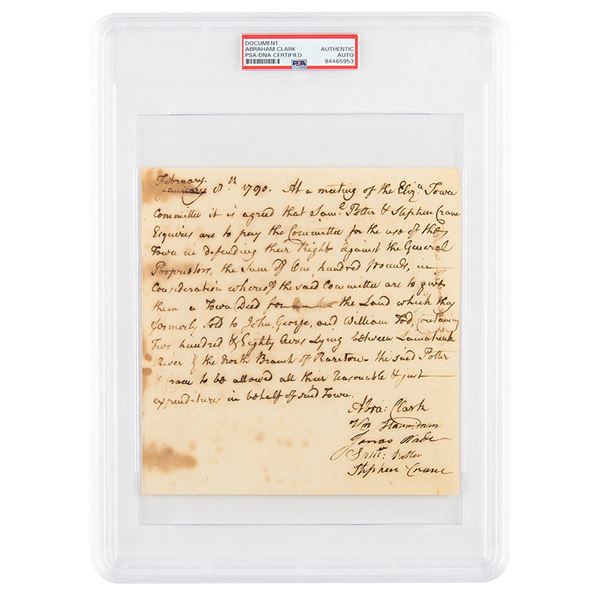 DOCUMENT
ABRAHAM CLARK
PSA/DNA CERTIFIED
AUTHENTIC
AUTO
84465953
PSA
February
January 8th 1790. At a meeting of the Eliz.a Town
Committee it is agreed that Sam.l Potter & Stephen Crane
Esquires are to pay the Committee for the use of the
Town in defending their Right against the General
Proprietors, the Sum of One hundred pounds, in
Consideration whereof the said Committee are to give
them a Town Deed for the Land which they
formerly Sold to John, George, and William Tod, Containing
Two hundred & Eighty Acres Lying between Lamatunk
River & the North Branch of Rareton. the said Potter
& Crane to be allowed all their reasonable & just
expenditures in behalf of said Town.
Abra: Clark
Wm
Jonas Wade
Saml: Potter
Stephen Crane